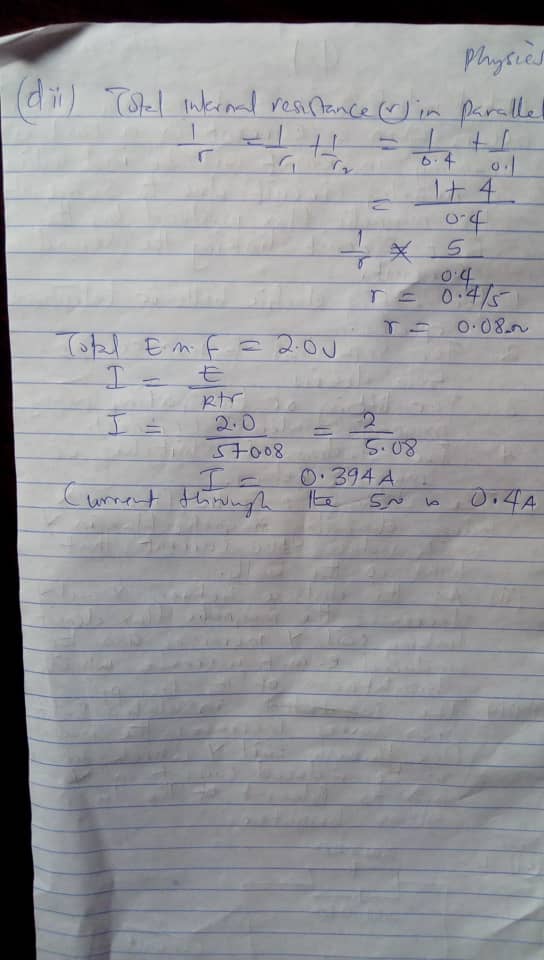 Physics
(dii) Total internal resistance (r) in parallel
1/r = 1/r₁ + 1/r₂ = 1/0.4 + 1/0.1
= 1+4/0.4
1/r = 5/0.4
r = 0.4/5
r = 0.08Ω
Total E.m.f = 2.0V
I = E/R+r
I = 2.0/5+0.08 = 2/5.08
I = 0.394A
Current through the 5Ω is 0.4A